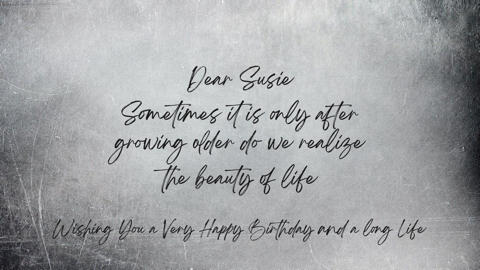 Dear Susie
Sometimes it is only after
growing older do we realize
the beauty of life
Wishing You a Very Happy Birthday and a long Life